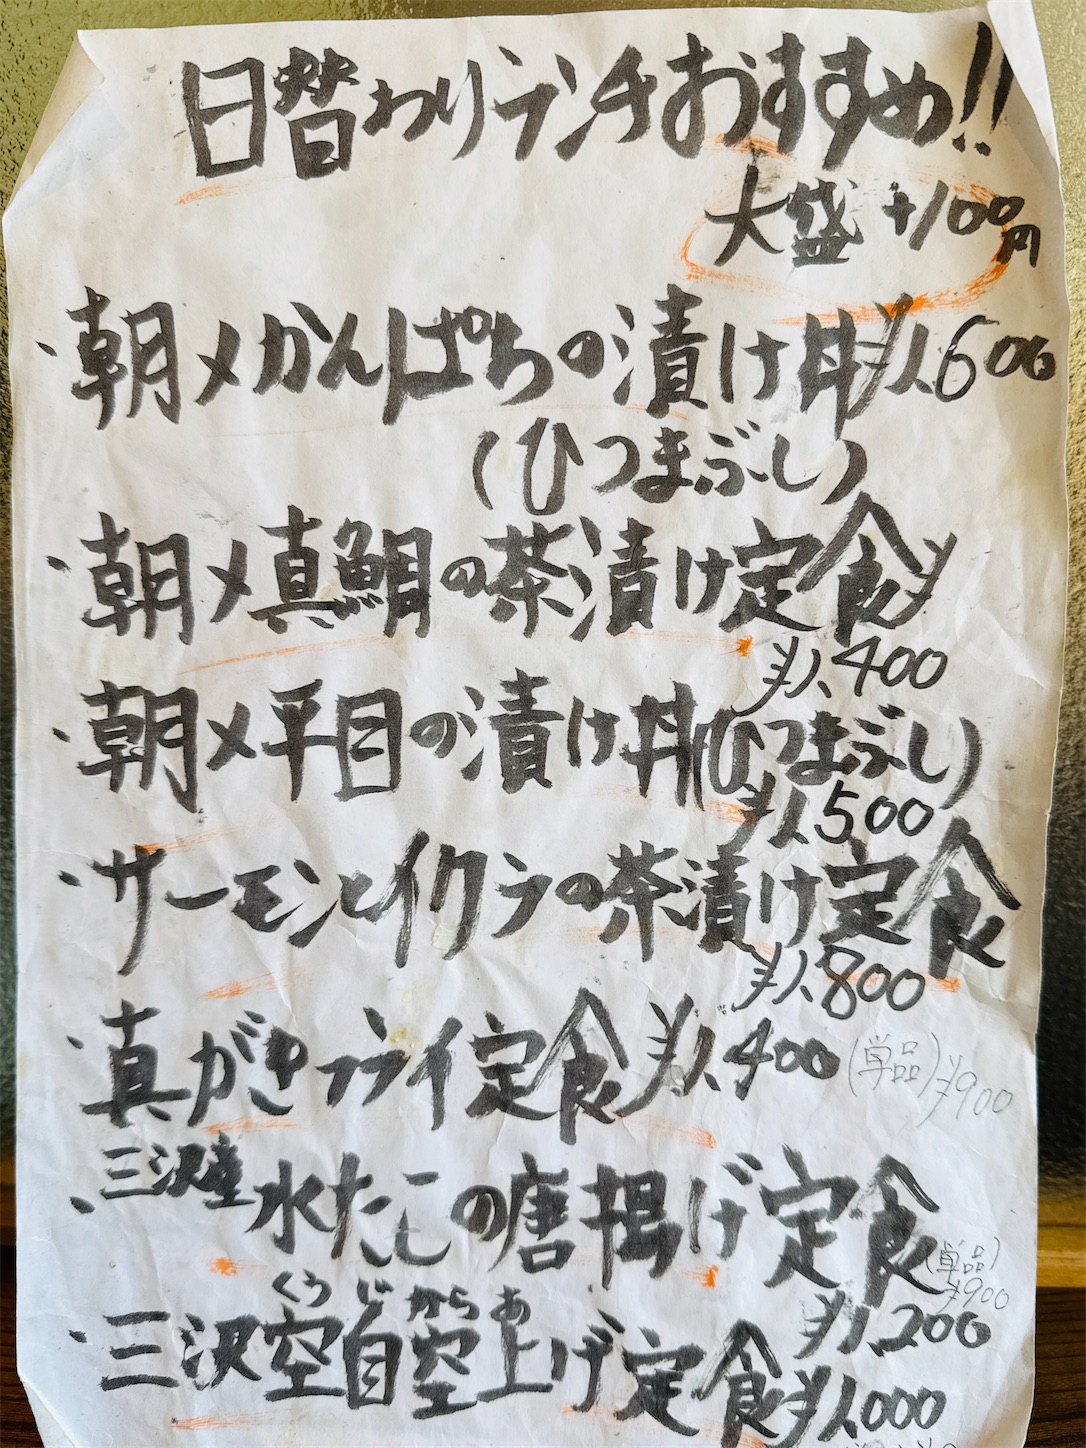 日替わりランチおすすめ!!
大盛+100円
、朝〆かんぱちの漬け丼¥1,600
(ひつまぶし)
、朝〆真鯛の茶漬け定食¥
¥1,400
、朝〆平目の漬け丼(ひつまぶし)
¥1,500
、サーモンとイクラの茶漬け定食
¥1,800
、真がきフライ定食¥1,400(単品)¥900
、三沢産水たこの唐揚げ定食
(単品)
¥900
¥1,200
くうじからあ
、三沢空自空上げ定食¥1,000